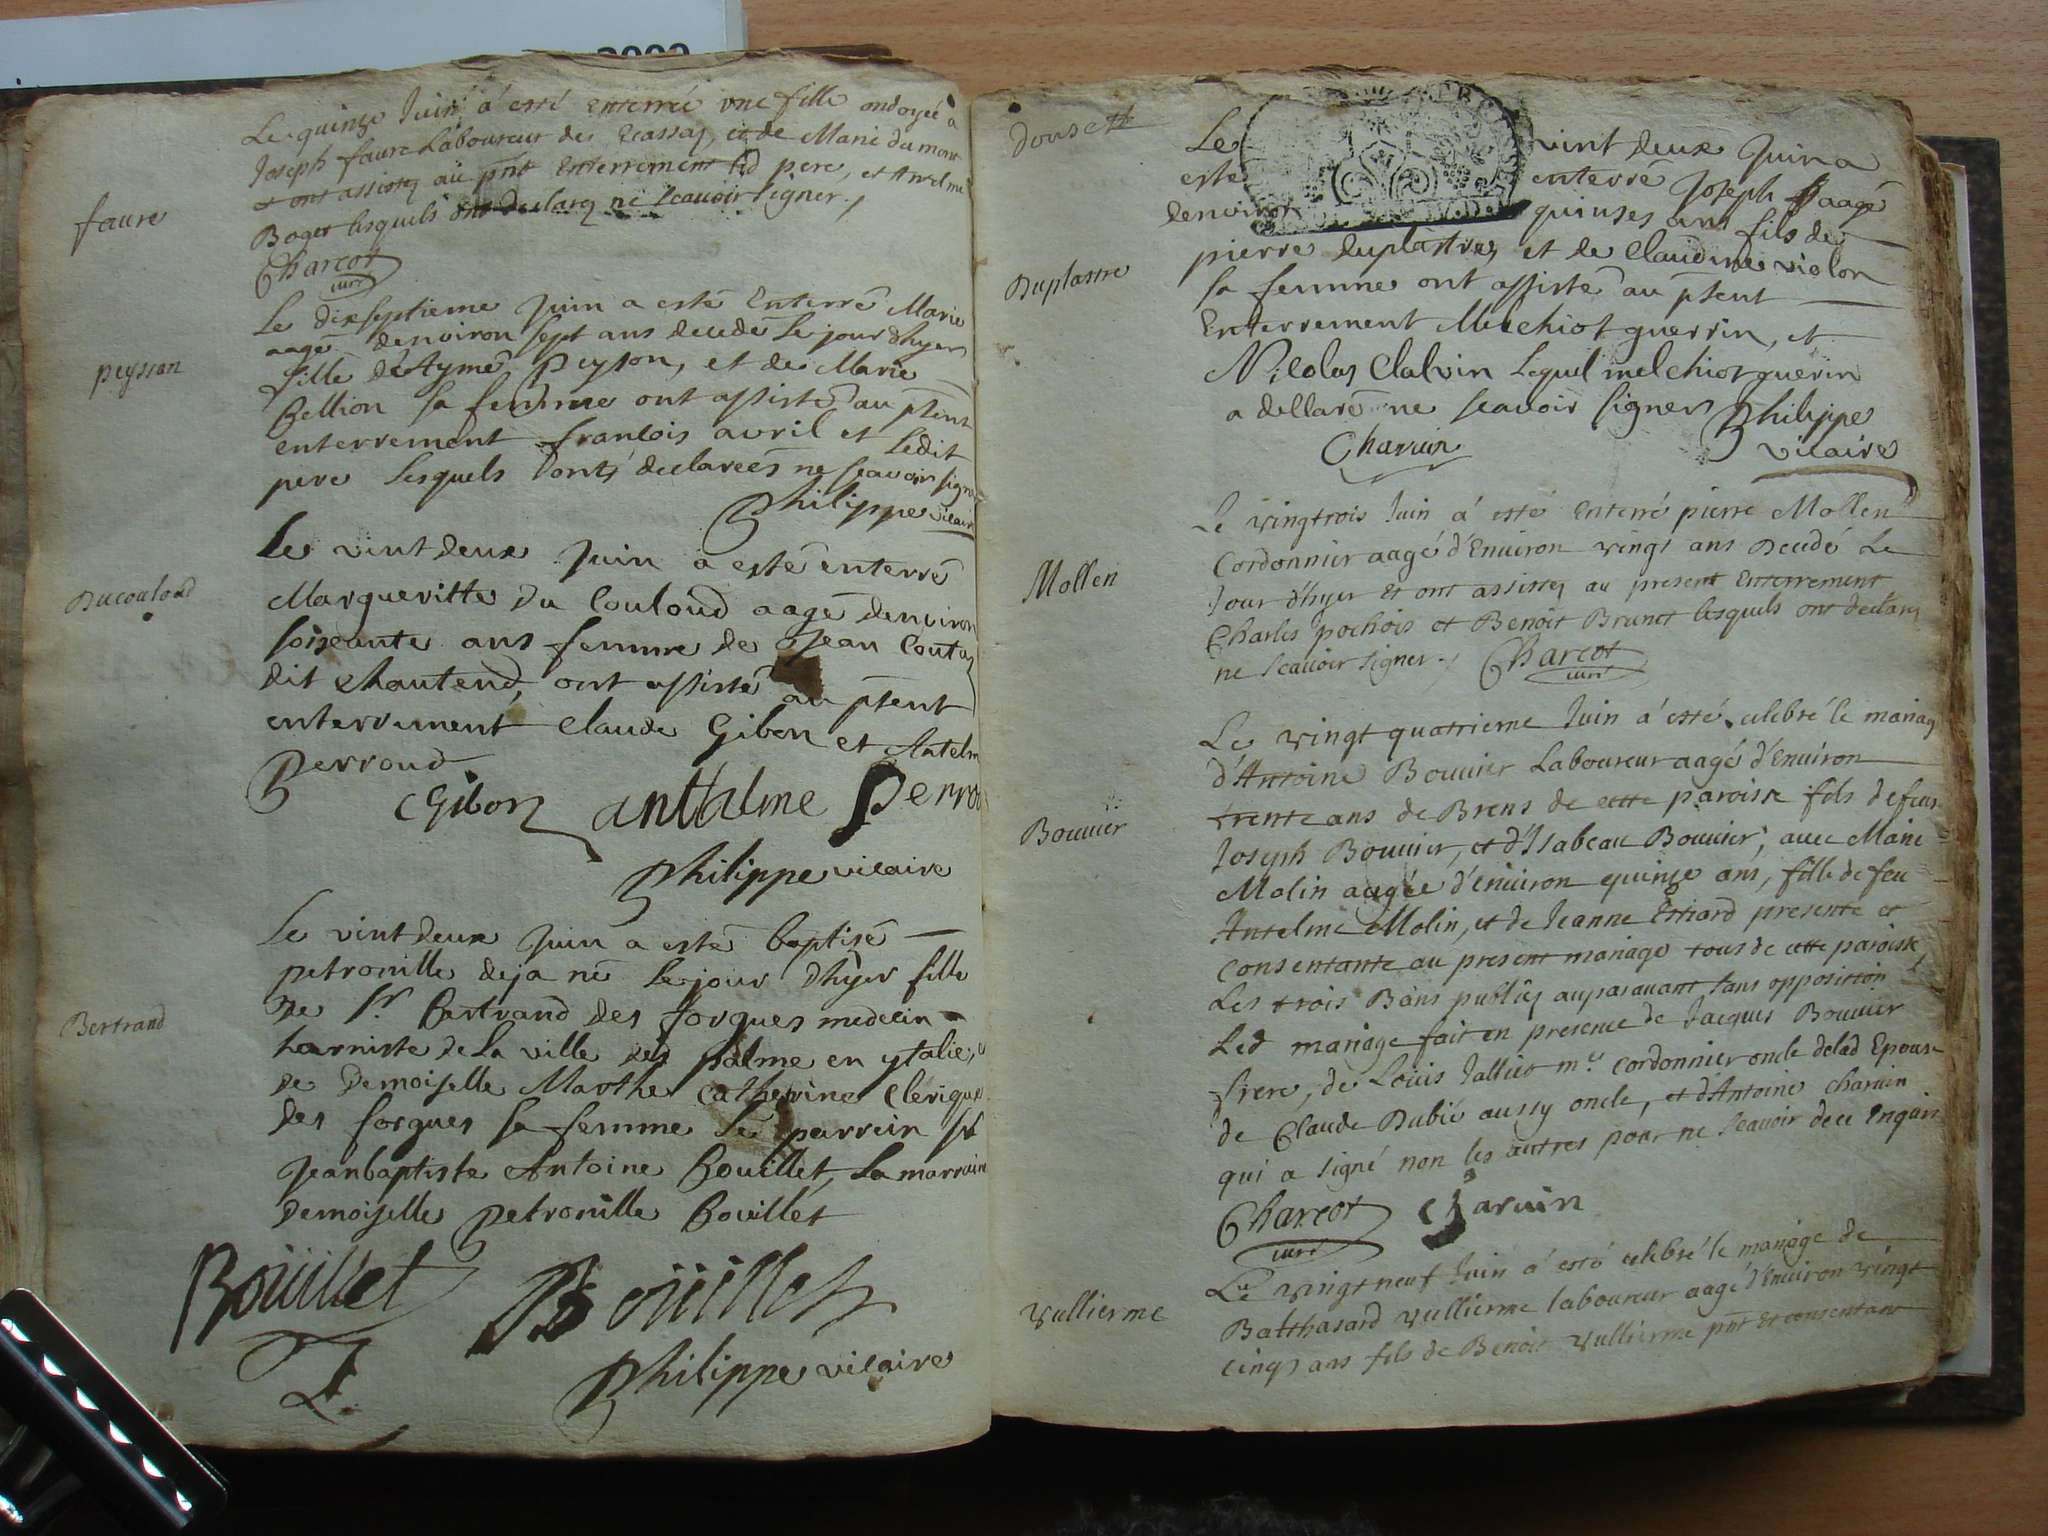 Le quinze Juin a esté Enterrée une fille ondoyée a
Joseph faure Laboureur des Ecassaz, et de Marie du mont
et ont assistez au pnt Enterrement led pere, et Anselme
Boget lesquels ont declarez ne scavoir signer.
faure
Charcot
curé
Le dixseptieme Juin a esté Enterré Marie
aagé denviron sept ans decede le jour dhyer
fille de Aymé Peyson, et de Marie
peysson
Bellion sa femme ont assisté au pñt
enterrement francois avril et Ledit
pere lesquels ont declarées ne scavoir signe
Philippe vicaire
Le vint deux Juin a esté enterré
Margueritte Du Couloud aagé denviron
Ducouloud
soiseante ans femme de Jean Coutaz
dit Chautend, ont assisté au psent
enterrement Claude Gibon et Antelm
Perroud
Gibon anthalme Perro
Philippe vicaire
Le vint deux Juin a esté baptisé
petronille deja né le jour dhyer fille
De Sr. Bertrand des forgues medecin
Bertrand
harniste de La ville des palme en ytalie,
de Demoiselle Marthe Catherine Clerique
des forgues sa femme le parrein Sr
Jeanbaptiste Antoine Bouillet, La marraine
Demoiselle Petronille Bouillet
Boüillet Boüillet
Philippe vicaire
Le vint deux Juin a
esté enterré Joseph aagé
denviron quinses ans fils de
pierre duplastrez et de Claudine violon
Duplastre
sa femme ont assisté au psent
Enterrement Melchiot guerrin, et
Nicolas Chalvin Lequel melchiot guerin
a dellaré ne scavoir signer Philippe
Charvin vicaire
Le vingtrois Juin a esté Enterré pierre Mollen
Cordonnier aagé d'Environ vingt ans Decedé Le
Mollen
Jour d'hyer Et ont assistez au present Enterrement
Charles pochois et Benoit Brunet lesquels ont declarez
ne scavoir signer. Charcot
curé
Le vingt quatrieme Juin a esté celebré le mariag
d'Antoine Bouvier Laboureur aagé d'Environ
trente ans de Brens de cette paroisse fils de feu
Bouvier
Joseph Bouvier, et d'Isabeau Bouvier, avec Marie
Molin aagée d'environ quinze ans, fille de feu
Antelme Molin, et de Jeanne Estiard presente et
consentante au present mariage tous de cette paroisse
Les trois Bans publiez auparavant sans opposition
Led mariage fait en presence de Jacques Bouvier
frere, de Louis Jallies me. cordonnier oncle delad Epouse
de Claude Dubié aussy oncle, et d'Antoine charvin
qui a signé non les autres pour ne scavoir de ce Enquis
Charcot Charvin
curé
Le vingt neuf Juin a esté celebré le mariage de
Balthasard vullierme laboureur aagé d'Environ vingt
vullierme
cinq ans fils de Benoit vullierme pnt Et consentant